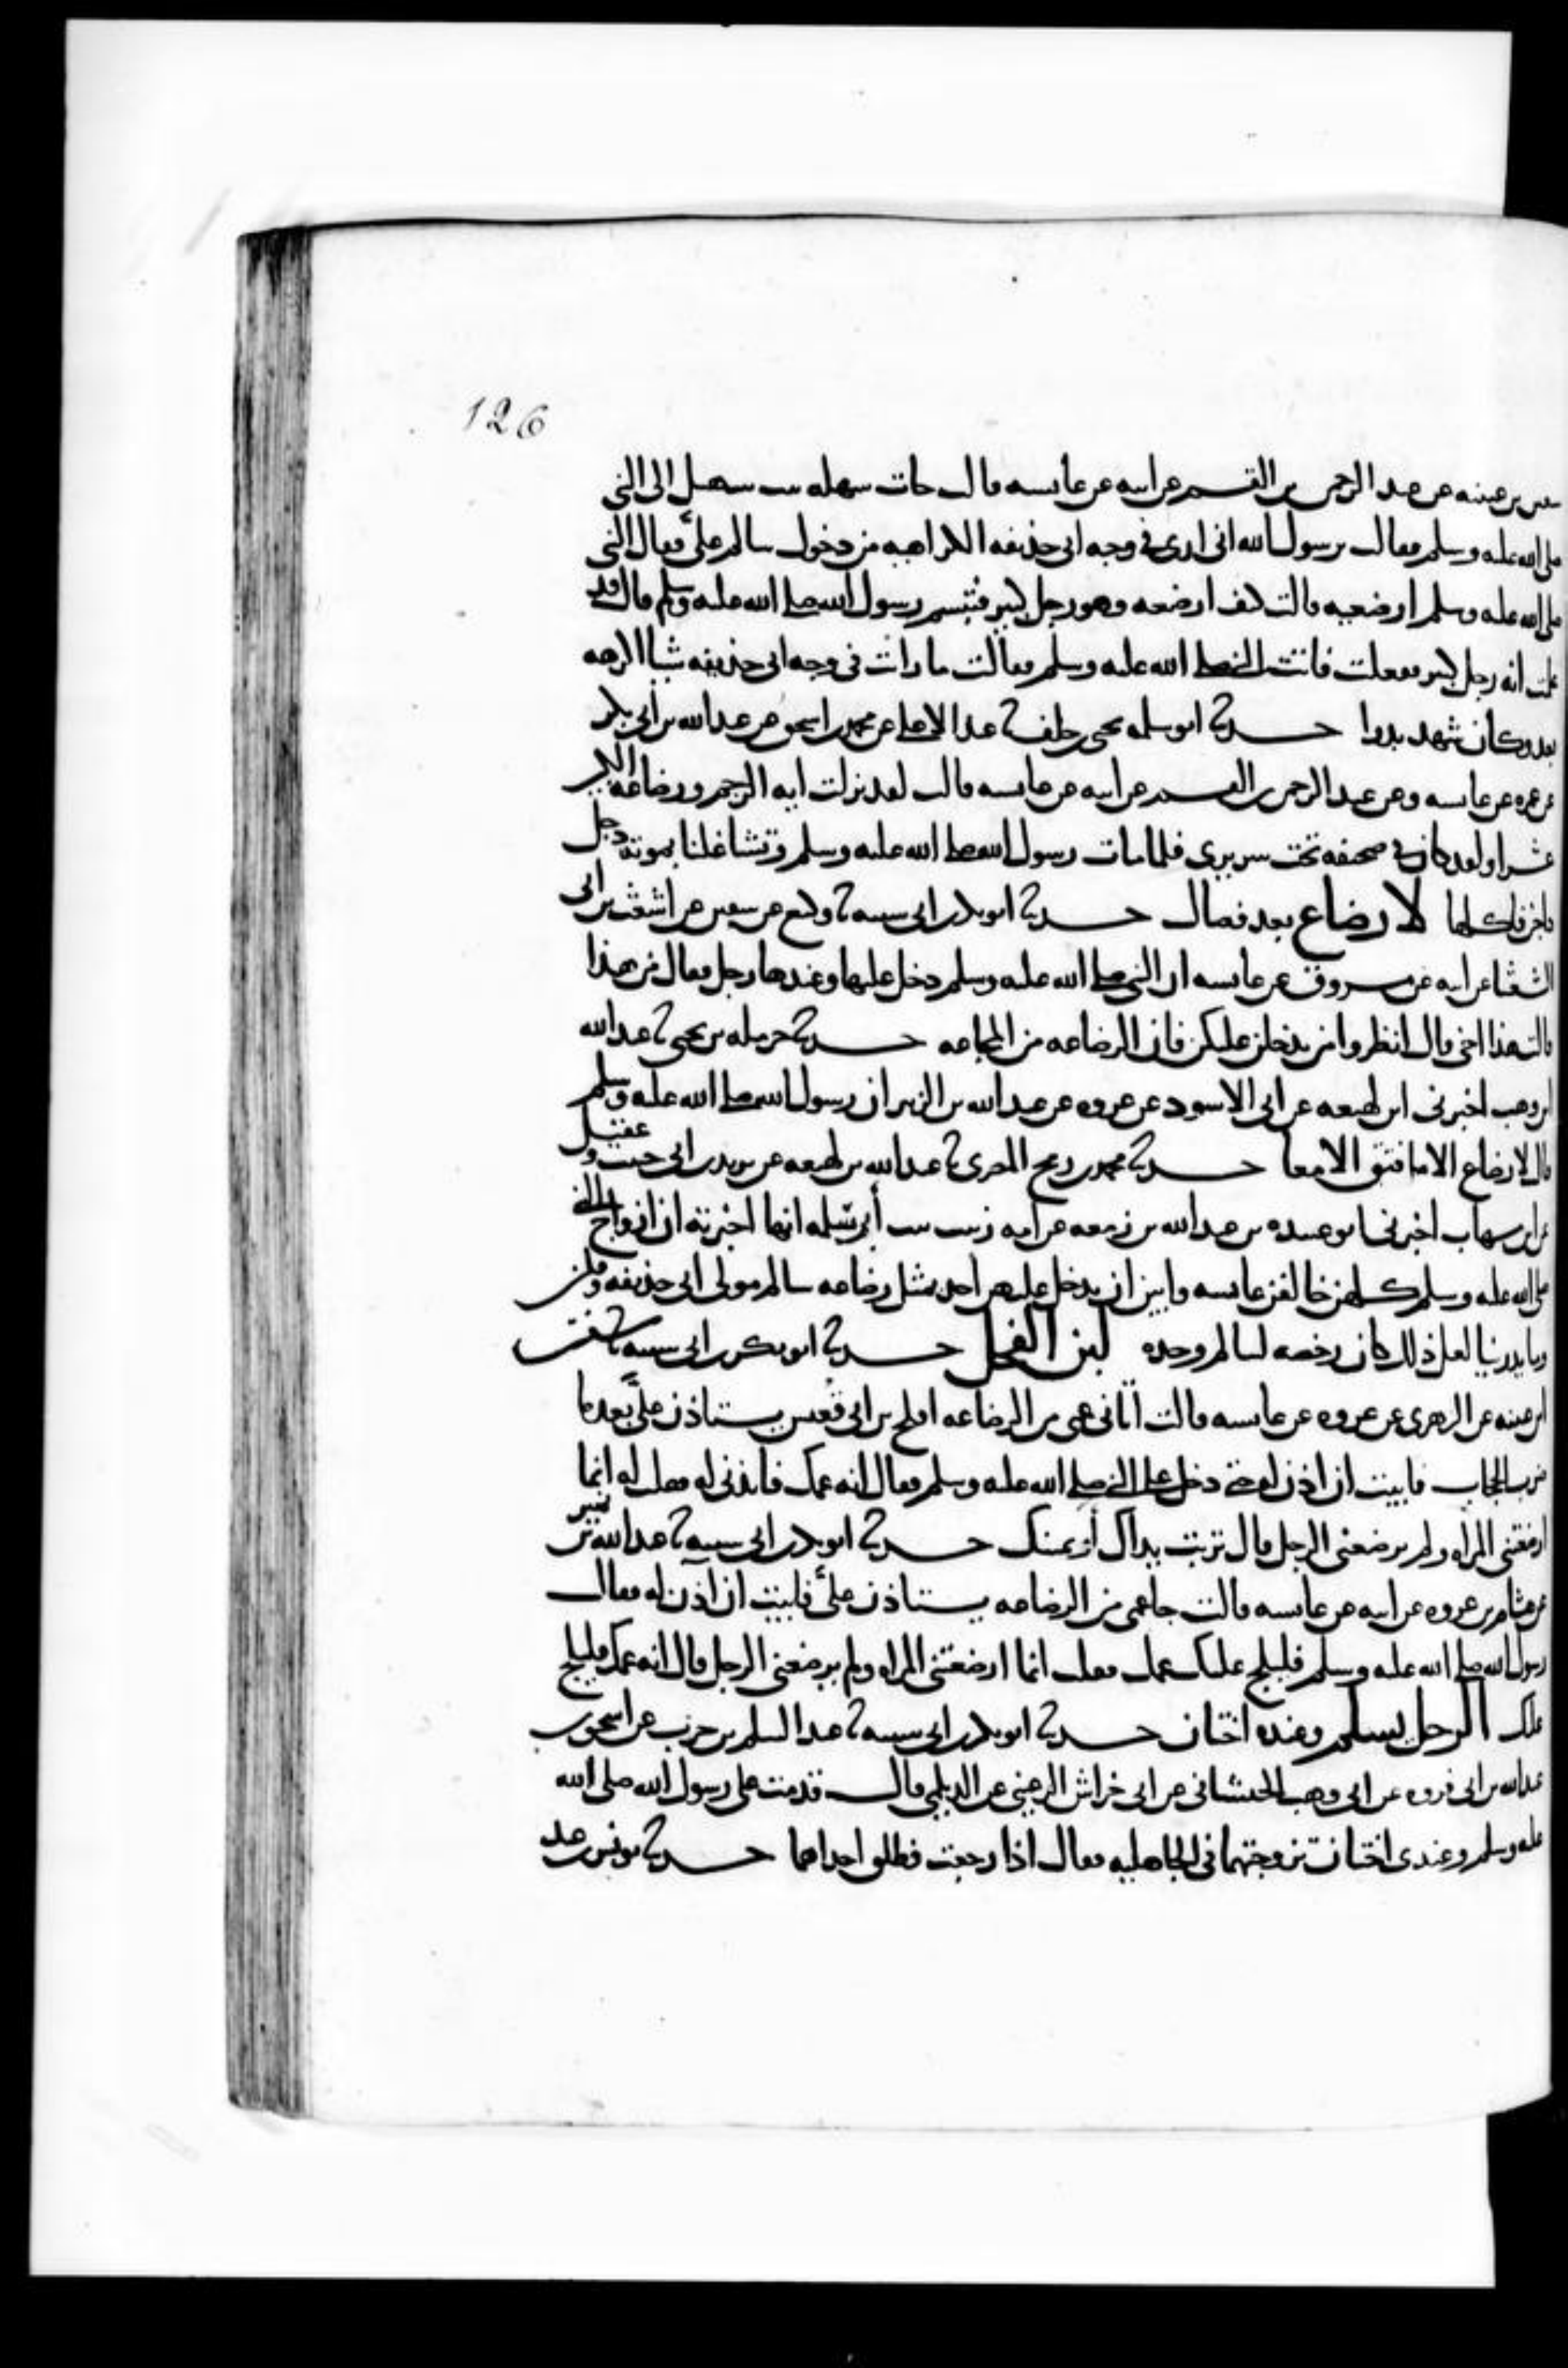 126
سفين بن عيينه عن عبد الرحمن بن القسم عن ابيه عن عايشه قالت جات سهله بنت سهيل الى النبي
صلى الله عليه وسلم فقالت يرسول الله اني ارى في وجه ابي حذيفه الكراهيه من دخول سالم عليَّ فقال النبي
صلى الله عليه وسلم ارضعيه قالت كيف ارضعه وهو رجل كبير فتبسم رسول الله صلى الله عليه وسلم وقال قد
علمت انه رجل كبير ففعلت فاتت النبي صلى الله عليه وسلم فقالت ما رايت في وجه ابي حذيفه شيا اكرهه
بعد وكان شهد بدرا حدثنا ابو سلمه يحيى بن خلف ثنا عبد الاعلى عن محمد بن اسحق عن عبد الله بن ابي بكر
عن عمره عن عايشه وعن عبد الرحمن بن القسم عن ابيه عن عايشه قالت لقد نزلت ايه الرجم ورضاعه الكبير
عشرا ولقد كان في صحيفه تحت سريري فلما مات رسول الله صلى الله عليه وسلم وتشاغلنا بموته دخل
داجن فاكلها لا رضاع بعد فصال حدثنا ابو بكر بن ابي شيبه ثنا وكيع عن سفين عن اشعث بن ابي
الشعثا عن ابيه عن مسروق عن عايشه ان النبي صلى الله عليه وسلم دخل عليها وعندها رجل فقال من هذا
قالت هذا اخي قال انظروا من يدخلن عليكن فان الرضاعه من المجاعه حدثنا حرمله بن يحيى ثنا عبد الله
ابن وهب اخبرني ابن لهيعه عن ابي الاسود عن عروه عن عبد الله بن الزبير ان رسول الله صلى الله عليه وسلم
قال لا رضاع الا ما فتق الامعا حدثنا محمد بن رمح المصري ثنا عبد الله بن لهيعه عن يزيد بن ابي حبيب وعقيل
عن ابن شهاب اخبرني ابو عبيده بن عبد الله بن زمعه عن امه زينب بنت أبي سلمه انها اخبرته ان ازواج النبي
صلى الله عليه وسلم كلهن خالفن عايشه وابين ان يدخل عليهن احد بمثل رضاعه سالم مولى ابي حذيفه وقلن
وما يدرينا لعل ذلك كان رخصه لسالم وحده لبن الفحل حدثنا ابو بكر بن ابي شيبه ثنا سفين
ابن عيينه عن الزهري عن عروه عن عايشه قالت أتاني عمي من الرضاعه افلح بن ابي قعيس يستاذن عليَّ بعد ما
ضرب الحجاب فابيت ان اذن له حتى دخل علي النبي صلى الله عليه وسلم فقال انه عمك فايذني له فقلت له انما
ارضعتني المراه ولم يرضعني الرجل قال تربت يداك او يمينك حدثنا ابو بكر بن ابي شيبه ثنا عبد الله بن نمير
عن هشام بن عروه عن ابيه عن عايشه قالت جا عمي من الرضاعه يستاذن عليَّ فابيت ان آذن له فقال
رسول الله صلى الله عليه وسلم فليلج عليك عمك فقلت انما ارضعتني المراه ولم يرضعني الرجل قال انه عمك فليلج
عليك الرجل يسلم وعنده اختان حدثنا ابو بكر بن ابي شيبه ثنا عبد السلم بن حرب عن اسحق بن
عبد الله بن ابي فروه عن ابي وهب الجيشاني عن ابي خراش الرعيني عن الديلمي قال قدمت على رسول الله صلى الله
عليه وسلم وعندي اختان تزوجتهما في الجاهليه فقال اذا رجعت فطلق احداهما حدثنا يونس بن عبد